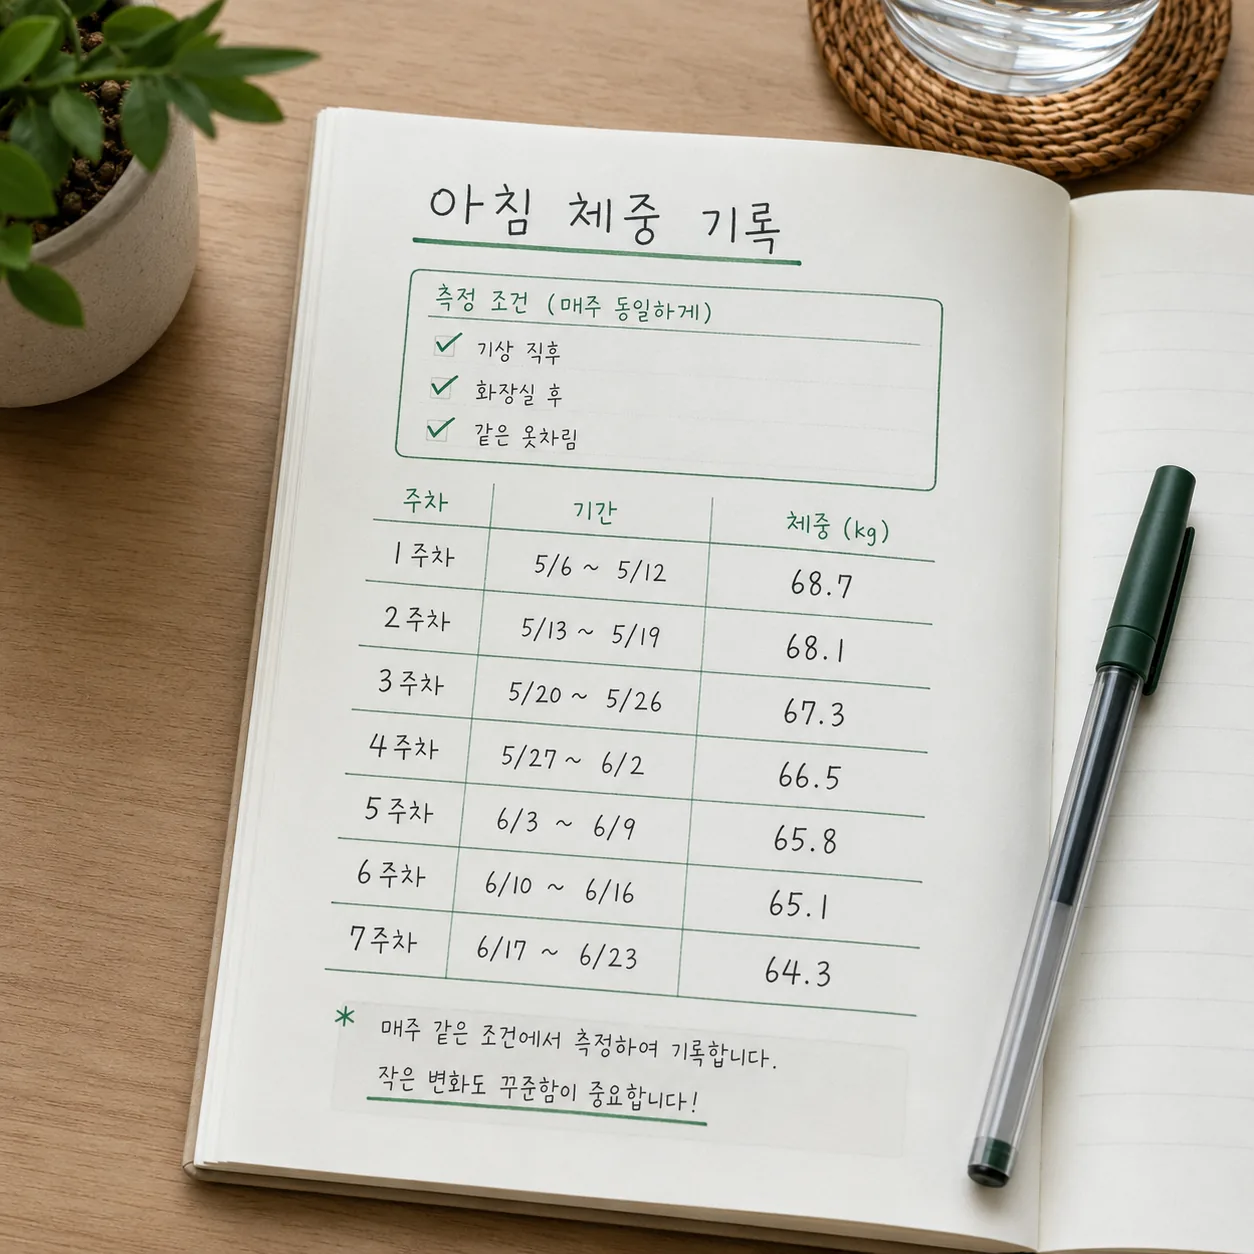 아침 체중 기록
측정 조건 (매주 동일하게)
기상 직후
화장실 후
같은 옷차림
주차 기간 체중 (kg)
1주차 5/6 ~ 5/12 68.7
2주차 5/13 ~ 5/19 68.1
3주차 5/20 ~ 5/26 67.3
4주차 5/27 ~ 6/2 66.5
5주차 6/3 ~ 6/9 65.8
6주차 6/10 ~ 6/16 65.1
7주차 6/17 ~ 6/23 64.3
* 매주 같은 조건에서 측정하여 기록합니다.
작은 변화도 꾸준함이 중요합니다!